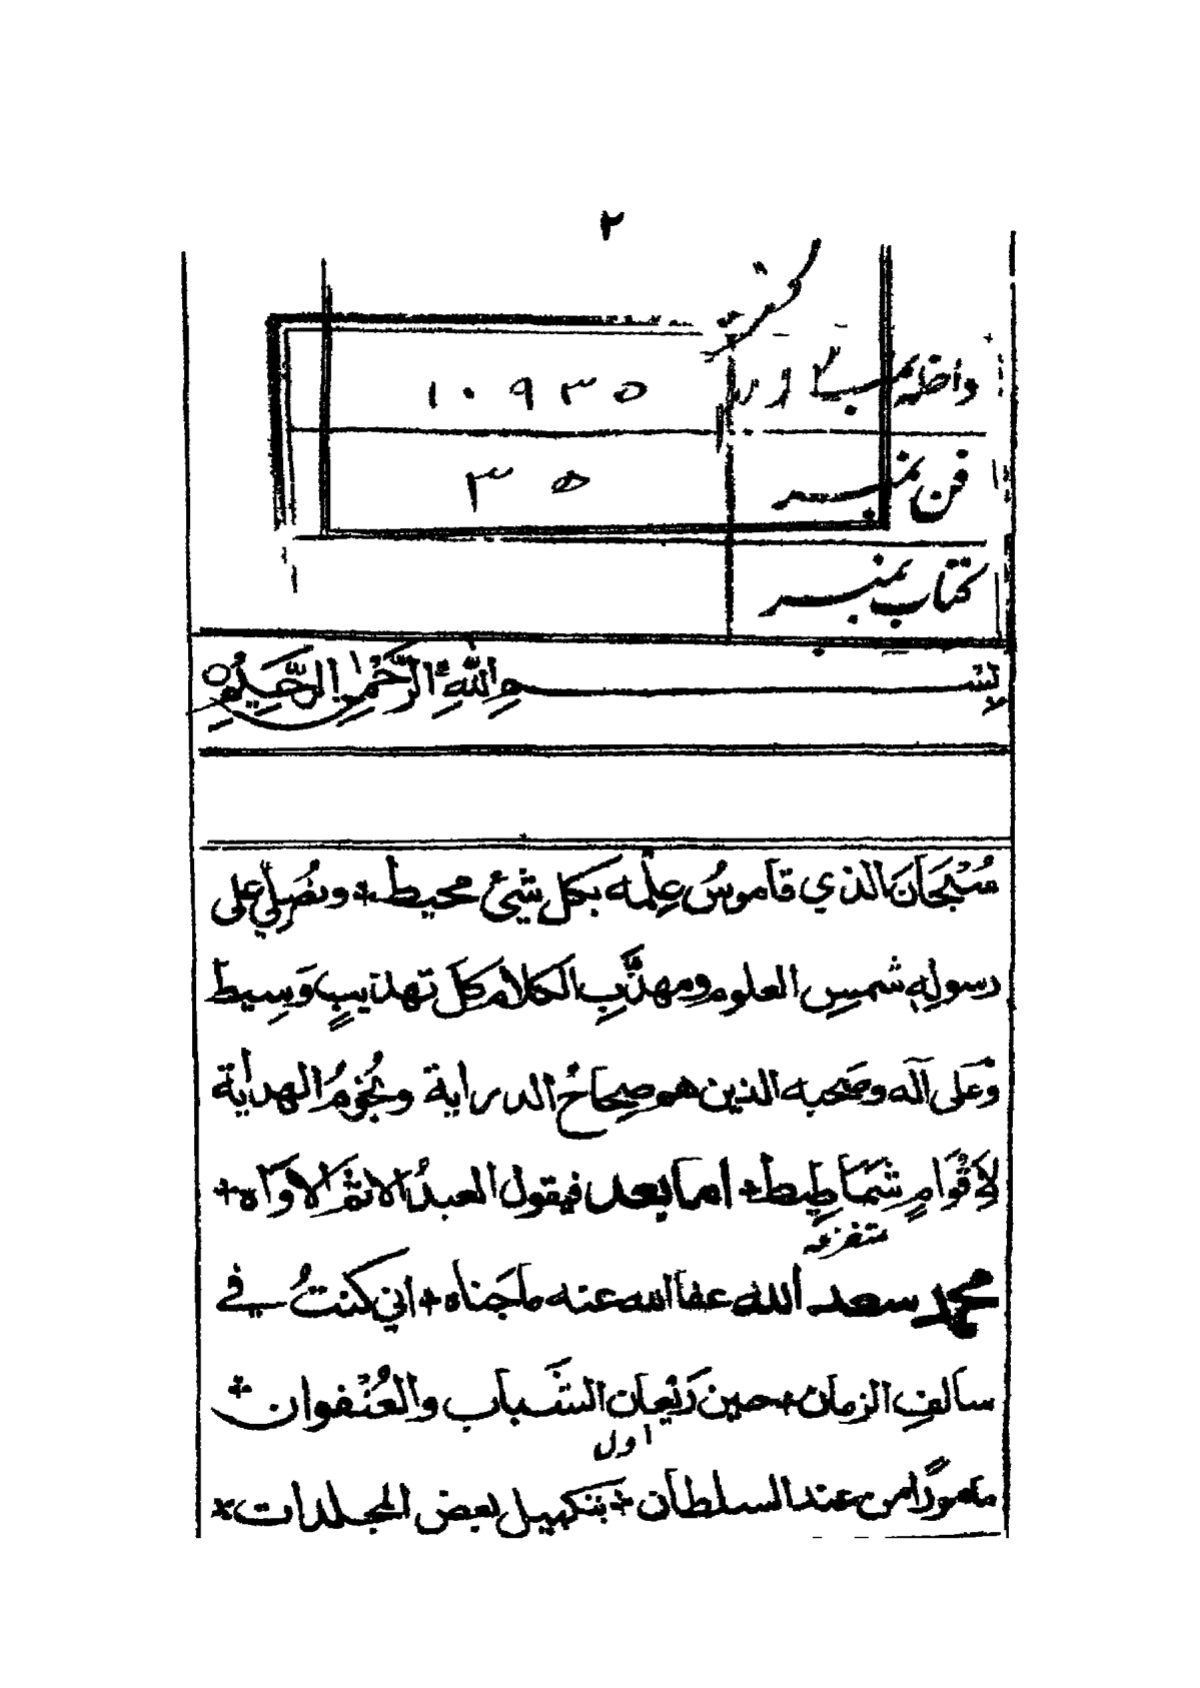 ٢
داخله نمبر ١٠٩٣٥
فن نمبر ٣٥
كتاب نمبر
بِسْمِ اللّٰهِ الرَّحْمٰنِ الرَّحِيْمِ
سُبْحَانَ الذي قاموسُ عِلْمه بكل شيْئ محيط + ونُصَلِّي على
رسولِهِ شمسِ العلوم ومهذَّبِ الكلام كلَّ تهذيبٍ وَسيط
وَعَلى آله وصَحبه الذين هم صِحاحُ الدراية ونُجُومُ الهداية
لِاَقْوَامٍ شَمَاطِيط + اما بعد فيقول العبدُ الاثم الاوّاه +
متفرعه
محمد سعد الله عفا الله عنه ماجَناه + اني كنتُ في
سالفِ الزمان + حين رَيْعان الشَّباب والعُنْفوان +
اول
مامورًا من عند السلطان + بتكميل بعض المجلدات +